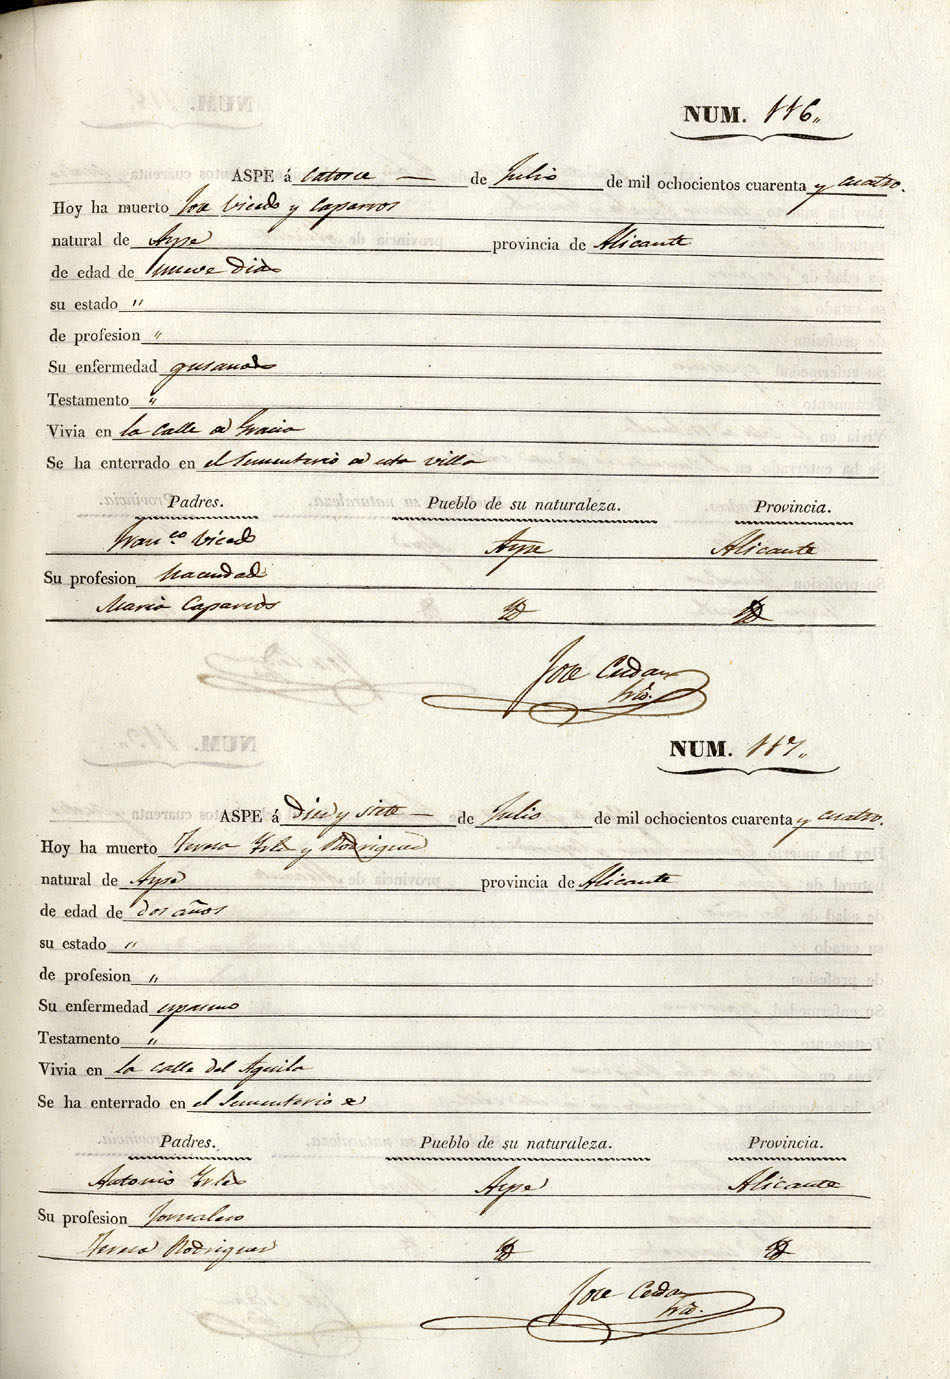 NUM. 116.,
ASPE á catorce — de Julio de mil ochocientos cuarenta y cuatro.
Hoy ha muerto Jose Vicedo y Caparros
natural de Aspe provincia de Alicante
de edad de nueve dias
su estado "
de profesion "
Su enfermedad gusanos
Testamento "
Vivia en la Calle de Gracia
Se ha enterrado en el Sementerio de esta villa
Padres. Pueblo de su naturaleza. Provincia.
Franco. Vicedo Aspe Alicante
Su profesion Hacendado
Maria Caparros Yd Yd
Jose
NUM. 117.,
ASPE á diez y siete — de Julio de mil ochocientos cuarenta y cuatro.
Hoy ha muerto Teresa Yrles y Rodriguez
natural de Aspe provincia de Alicante
de edad de dos años
su estado "
de profesion "
Su enfermedad espasmo
Testamento "
Vivia en la calle del Aguila
Se ha enterrado en el Sementerio
Padres. Pueblo de su naturaleza. Provincia.
Antonio Yrles Aspe Alicante
Su profesion Jornalero
Teresa Rodriguez Yd Yd
Jose